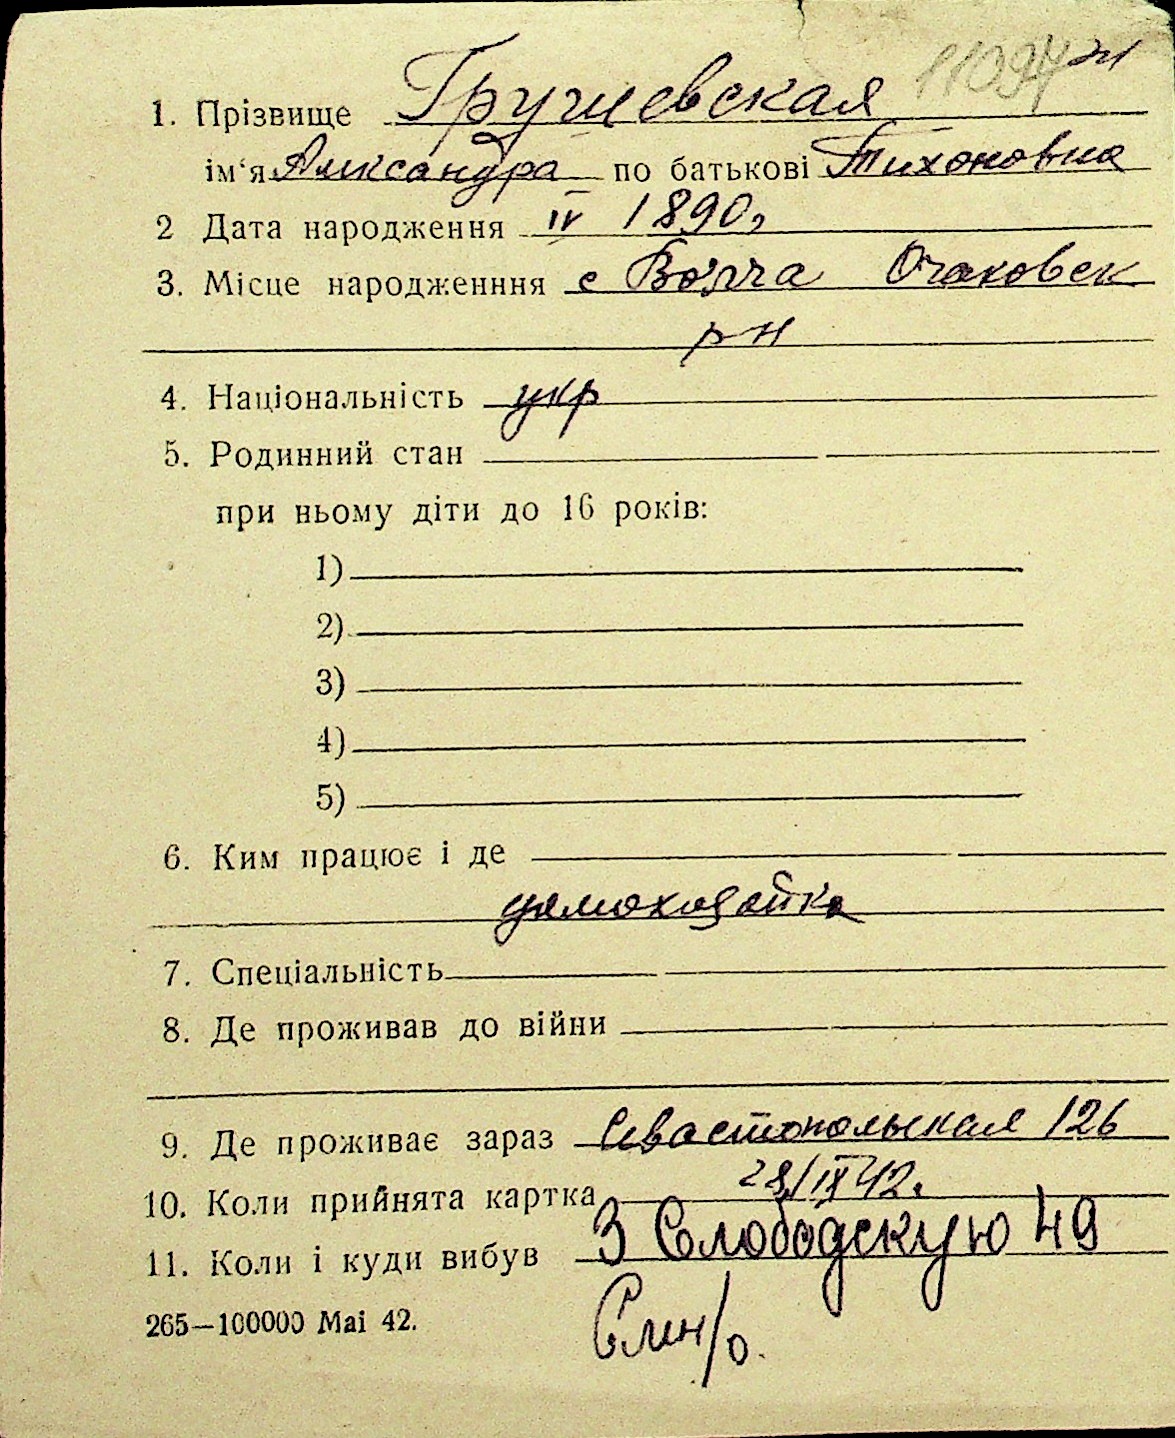 11094
1. Прізвище Грушевская
ім‘я Александра по батькові Тихоновна
2 Дата народження IV 1890,
3. Місце народженння с Очаковск
рн
4. Національність укр
5. Родинний стан
при ньому діти до 16 років:
1)
2)
3)
4)
5)
6. Ким працює і де
домохозяйка
7. Спеціальність
8. Де проживав до війни
9. Де проживає зараз Севастопольская 126
10. Коли прийнята картка 28/IX 42.
11. Коли і куди вибув 3 Слободскую 49
265—100000 Маі 42.